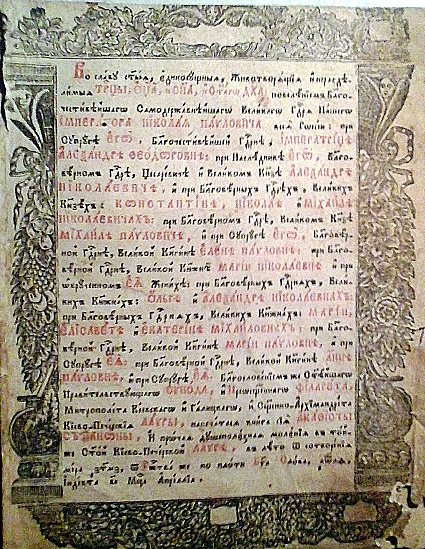 Во славу ст҃ыѧ, єдиносꙋщныѧ, Животворѧщїѧ и нераздѣ-
лимыѧ ТРЦЫ, ЄЦА, и СНА, и ДХА, повелѣнїемъ Благо-
честивѣйшагѡ Самодержавнѣйшагѡ Великагѡ Гдⷭ҇рѧ Нашегѡ
НИКОЛАѦ ПАѴЛОВИЧА всеѧ при
Сꙋпрꙋгѣ ЄГѠ, Благочестивѣйшей Гдⷭ҇рнѣ, ІМПЕРАТРИЦѢ
АЛЕѮАНДРѢ ѲЕѠДОРОВНѢ; при Наслѣдникѣ ЄГѠ, Благо-
вѣрномъ Гдⷭ҇рѣ, Цесаревичѣ и Великомъ Кнѕѣ АЛЕѮАНДРѢ
НИКОЛАЕВИЧѢ, и при Благовѣрныхъ Гдⷭ҇рѣхъ, Великихъ
Кнѕѣхъ: КѠНСТАНТИНѢ, НИКОЛАѢ и МИХАИЛѢ
НИКОЛАЕВИЧАХЪ; при Благовѣрномъ Гдⷭ҇рѣ, Великомъ Кнѕѣ
МИХАИЛѢ ПАѴЛОВИЧѢ, и при Сꙋпрꙋгѣ ЄГѠ, Благовѣр-
ной Гдⷭ҇рнѣ, Великой Кнѧгинѣ ЄЛЕНѢ ПАѴЛОВНѢ; при Благо-
вѣрной Гдⷭ҇рнѣ, Великой Кнѧжнѣ МАРІИ НИКОЛАЕВНѢ и при
ѡбрꙋченномъ ЄѦ Женихѣ; при Благовѣрныхъ Гдⷭ҇рнѧхъ, Вели-
кихъ Кнѧжнахъ: ОЛЬГѢ и АЛЕѮАНДРѢ НИКОЛАЕВНАХЪ;
при Благовѣрныхъ Гдⷭ҇рнѧхъ, Великихъ Кнѧжнахъ: МАРІИ,
ЄЛІСАВЕТѢ и ЄКАТЕРИНѢ МИХАИЛОВНАХЪ; при Благо-
вѣрной Гдⷭ҇рнѣ, Великой Кнѧгинѣ МАРІИ ПАѴЛОВНѢ, и при
Сꙋпрꙋгѣ ЄѦ; при Благовѣрной Гдⷭ҇рнѣ, Великой Кнѧгинѣ АННѢ
ПАѴЛОВНѢ, и при Сꙋпрꙋгѣ ЄѦ; Благословенїемъ же Ст҃ѣйшагѡ
Правительствꙋющагѡ СѴНОДА, и ФІЛАРЕТА,
Митрополита Кїевскагѡ и Галицкагѡ, и Сщ҃енно-Архімандрїта
Кїево-Печерскїѧ ЛАѴРЫ, напечатасѧ книга сїѧ АКАѲІСТЫ
СЪ КАНѠНЫ, И прочаѧ дꙋшеполезнаѧ моленїѧ въ той-
же Ст҃ой Кїево-Печерской ЛАѴРѢ, въ лѣто ѿ сотворенїѧ
мїра ҂зтмз, ѿ Рⷤтва же по плоти БГА СЛОВА,
Індїкта Мцⷭ҇а Апрїллїа.